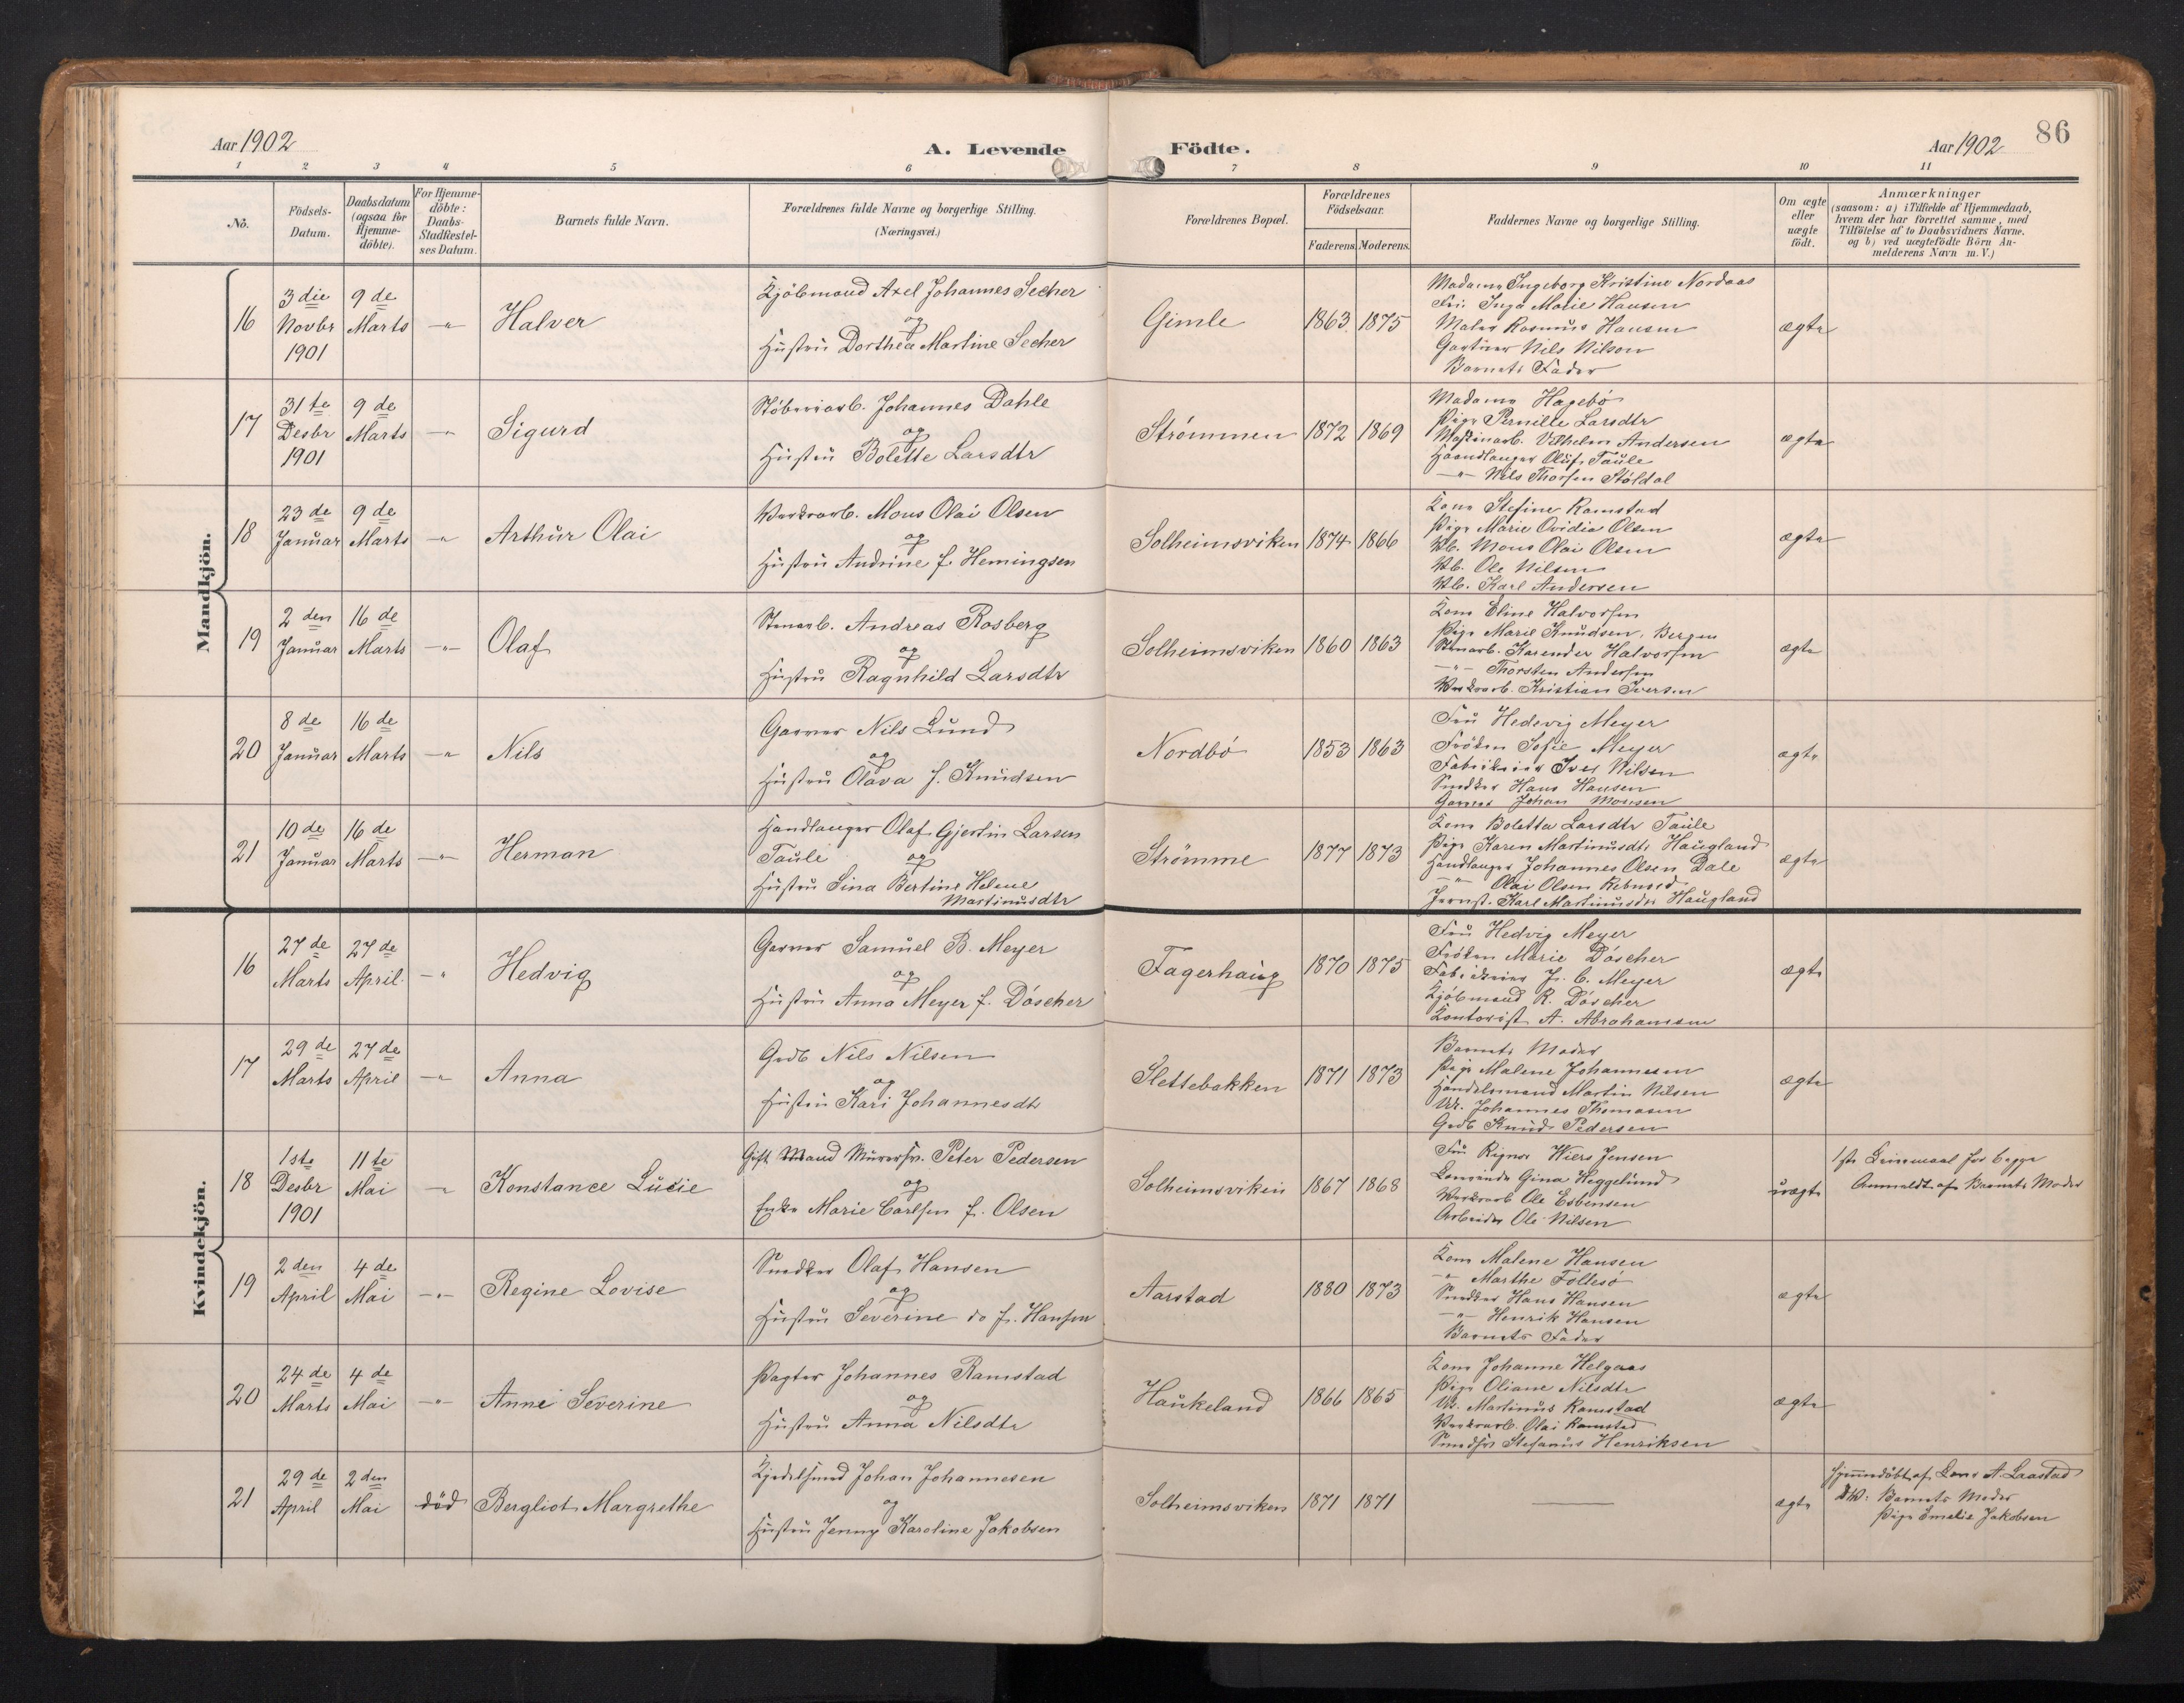 Aar 1902
A. Levende
Födte.
Aar 1902
86
1 2 3 4 5 6 7 8 9 10 11
No.
Födsels-
Datum.
Daabsdatum
(ogsaa for
Hjemme-
döbte).
For Hjemme-
döbte:
Daabs-
Stadfestel-
ses Datum.
Barnets fulde Navn.
Forældrenes fulde Navne og borgerlige Stilling.
(Næringsvei.)
Forældrenes Bopæl.
Forældrenes
Födselsaar.
Faderens. Moderens.
Faddernes Navne og borgerlige Stilling.
Om ægte
eller
uægte
födt.
Anmærkninger
(saasom: a) i Tilfælde af Hjemmedaab,
hvem der har forrettet samme, med
Tilföielse af to Daabsvidners Navne.
og b) ved uægtefödte Börn An-
melderens Navn m.V.)
Mandkjön.
16
3die
Novbr
1901
9de
Marts
-"-
Halver
Kjöbmand Axel Johannes Secher
og
Hustru Dorthea Martine Secher
Gimle
1863 1875
Madame Ingeborg Kristine Nordaas
Inga Marie Hansen
Maler Rasmus Hansen
Gartner Nils Nilson
Barnets Fader
ægte
17
31te
Desbr
1901
9de
Marts
-"-
Sigurd
Stöberiarb. Johannes Dahle
og
Hustru Bolette Larsdtr
Strömmen
1872 1869
Madame Hagebö
Pige Pernille Larsdtr
Maskinarb. Vilhelm Andersen
Haandlanger Oluf Taule
-"- Nils Thorsen Stöldal
ægte
18
23de
Januar
9de
Marts
-"-
Arthur Olai
Værksarb. Mons Olai Olsen
og
Hustru Andrine f. Hemingsen
Solheimsviken
1874 1866
Kone Stefine Ramstad
Pige Marie Ovidia Olsen
Vb. Mons Olai Olsen
Vb. Ole Nilsen
Vb. Karl Andersen
ægte
19
2den
Januar
16de
Marts
-"-
Olaf
Stenarb. Andreas Rosberg
og
Hustru Ragnhild Larsdtr
Solheimsviken
1860 1863
Kone Eline Halvorsen
Pige Marie Knudsen, Bergen
Stenarb. Karender Halvorsen
-"- Thorsten Andersen
Værksarb. Kristian Iversen
ægte
20
8de
Januar
16de
Marts
-"-
Nils
Garver Nils Lund
og
Hustru Olava f. Knudsen
Nordbö
1853 1863
Fru Hedevig Meyer
Fröken Sofie Meyer
Fabrikeier Iver Nilsen
Snedker Hans Hansen
Garver Johan Monsen
ægte
21
10de
Januar
16de
Marts
-"-
Herman
Handlanger Olaf Gjertin Larsen
Taule og
Hustru Sina Bertine Helene
Martinusdtr
Strömme
1877 1873
Kone Boletta Larsdtr Taule
Pige Karen Martinusdtr Haugland
Handlanger Johannes Olsen Dale
-"- Olai Olsen
Karl Martinus Haugland
ægte
Kvindekjön.
16
27de
Marts
27de
April
-"-
Hedvig
Garver Samuel B. Meyer
og
Hustru Anna Meyer f. Döscher
Fagerhaug
1870 1875
Fru Hedvig Meyer
Fröken Marie Döscher
Fabrikeier J. C. Meyer
Kjöbmand R. Döscher
Kontorist A. Abrahamsen
ægte
17
29de
Marts
27de
April
-"-
Anna
Grdb Nils Nilsen
og
Hustru Kari Johannesdtr
Slettebakken
1871 1873
Barnets Moder
Pige Malene Johannesen
Handelsmand Martin Nilsen
Uk. Johannes Thomasen
Grdb Knud Pedersen
ægte
18
1ste
Desbr
1901
11te
Mai
-"-
Konstance Lucie
Gift Mand Murersv. Peter Pedersen
og
Enke Marie Carlsen f. Olsen
Solheimsviken
1867 1868
Fru Rigmor Wiers Jensen
Gina Heggelund
Værksarb Ole Esbensen
Arbeider Ole Nilsen
uægte
1ste Leiermaal for begge
Anmeldt af Barnets Moder
19
2den
April
4de
Mai
-"-
Regine Lovise
Snedker Olaf Hansen
og
Hustru Severine do f. Hansen
Aarstad
1880 1873
Kone Malene Hansen
-"- Marthe Follesö
Snedker Hans Hansen
-"- Henrik Hansen
Barnets Fader
ægte
20
24de
Marts
4de
Mai
-"-
Anne Severine
Pagter Johannes Ramstad
og
Hustru Anna Nilsdtr
Haukeland
1866 1865
Kone Johanne Helgaas
Pige Oliane Nilsdtr
Uk. Martinus Ramstad
Værksarb. Olai Ramstad
Smedsv Stefanus Henriksen
ægte
21
29de
April
2den
Mai
död
Bergliot Margrethe
Kjedelsmed Johan Johannesen
og
Hustru Jenny Karoline Jakobsen
Solheimsviken
1871 1871
ægte
Hjemmedöbt af Lars A. Laastad
DV: Barnets Moder
Pige Emelie Jakobsen